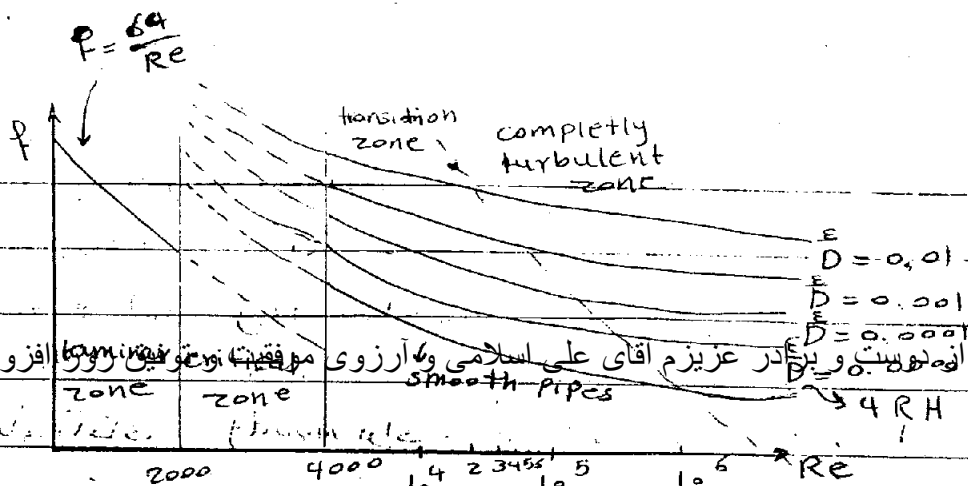 f = 64/Re
f
transition
zone
completly
turbulent
zone
ε/D = 0.01
ε/D = 0.001
ε/D = 0.0001
از دوست و برادر عزیزم اقای علی اسلامی و آرزوی موفقیت و توفیق روز افزو
laminar
zone
zone
smooth pipes
4RH
2000
4000
10^4
2 3 4 5
10^5
10^6
Re